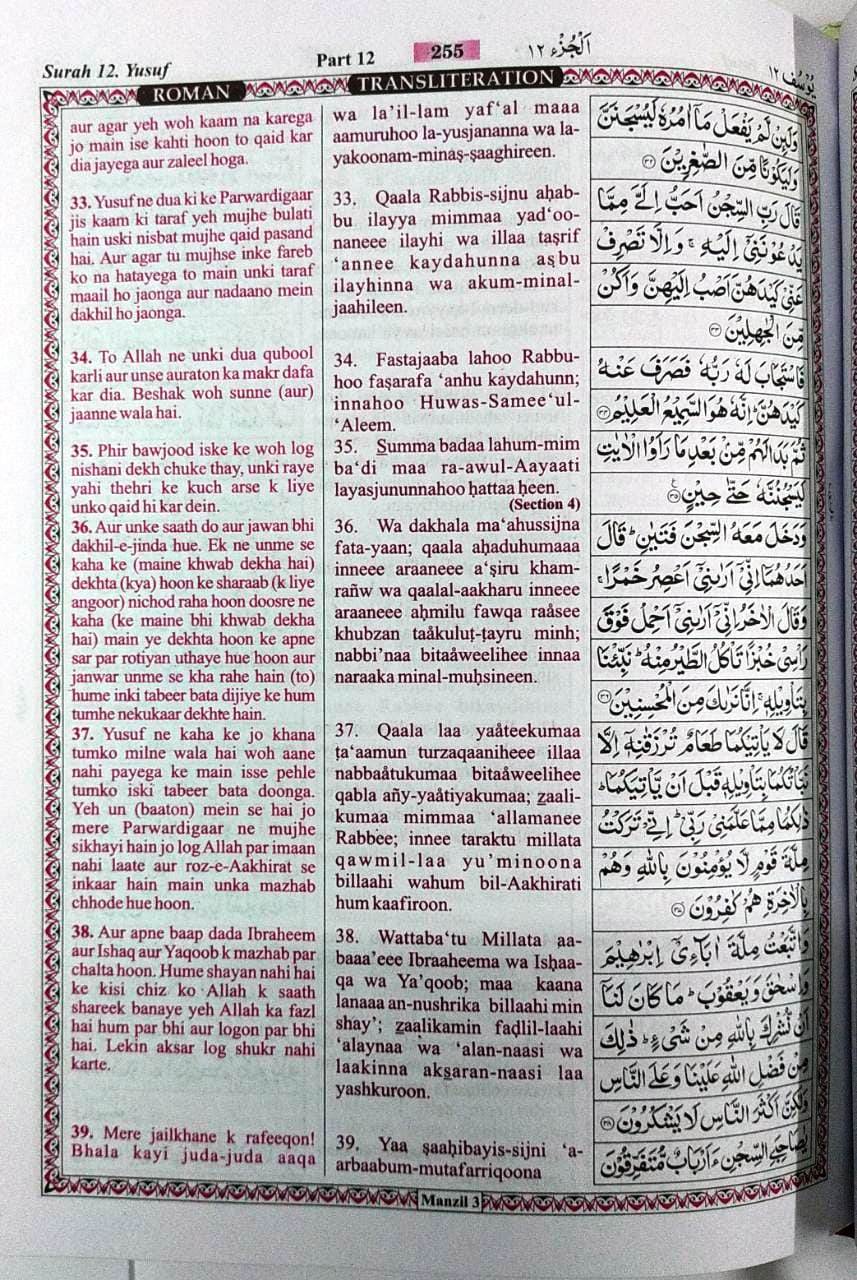 Surah 12. Yusuf
Part 12
255
اَلْجُزْء ١٢
يُوْسُف ١٢
ROMAN
TRANSLITERATION
aur agar yeh woh kaam na karega
jo main ise kahti hoon to qaid kar
dia jayega aur zaleel hoga.
33. Yusuf ne dua ki ke Parwardigaar
jis kaam ki taraf yeh mujhe bulati
hain uski nisbat mujhe qaid pasand
hai. Aur agar tu mujhse inke fareb
ko na hatayega to main unki taraf
maail ho jaonga aur nadaano mein
dakhil ho jaonga.
34. To Allah ne unki dua qubool
karli aur unse auraton ka makr dafa
kar dia. Beshak woh sunne (aur)
jaanne wala hai.
35. Phir bawjood iske ke woh log
nishani dekh chuke thay, unki raye
yahi thehri ke kuch arse k liye
unko qaid hi kar dein.
36. Aur unke saath do aur jawan bhi
dakhil-e-jinda hue. Ek ne unme se
kaha ke (maine khwab dekha hai)
dekhta (kya) hoon ke sharaab (k liye
angoor) nichod raha hoon doosre ne
kaha (ke maine bhi khwab dekha
hai) main ye dekhta hoon ke apne
sar par rotiyan uthaye hue hoon aur
janwar unme se kha rahe hain (to)
hume inki tabeer bata dijiye ke hum
tumhe nekukaar dekhte hain.
37. Yusuf ne kaha ke jo khana
tumko milne wala hai woh aane
nahi payega ke main isse pehle
tumko iski tabeer bata doonga.
Yeh un (baaton) mein se hai jo
mere Parwardigaar ne mujhe
sikhayi hain jo log Allah par imaan
nahi laate aur roz-e-Aakhirat se
inkaar hain main unka mazhab
chhode hue hoon.
38. Aur apne baap dada Ibraheem
aur Ishaq aur Yaqoob k mazhab par
chalta hoon. Hume shayan nahi hai
ke kisi chiz ko Allah k saath
shareek banaye yeh Allah ka fazl
hai hum par bhi aur logon par bhi
hai. Lekin aksar log shukr nahi
karte.
39. Mere jailkhane k rafeeqon!
Bhala kayi juda-juda aaqa
wa la'il-lam yaf‘al maaa
aamuruhoo la-yusjananna wa la-
yakoonam-minaṣ-ṣaaghireen.
33. Qaala Rabbis-sijnu aḥab-
bu ilayya mimmaa yad‘oo-
naneee ilayhi wa illaa taṣrif
‘annee kaydahunna aṣbu
ilayhinna wa akum-minal-
jaahileen.
34. Fastajaaba lahoo Rabbu-
hoo faṣarafa ‘anhu kaydahunn;
innahoo Huwas-Samee‘ul-
‘Aleem.
35. Summa badaa lahum-mim
ba‘di maa ra-awul-Aayaati
layasjununnahoo ḥattaa ḥeen.
(Section 4)
36. Wa dakhala ma‘ahussijna
fata-yaan; qaala aḥaduhumaaa
inneee araaneee a‘ṣiru kham-
rañw wa qaalal-aakharu inneee
araaneee aḥmilu fawqa raåsee
khubzan taåkuluṭ-ṭayru minh;
nabbi'naa bitaåweelihee innaa
naraaka minal-muḥsineen.
37. Qaala laa yaåteekumaa
ṭa‘aamun turzaqaaniheee illaa
nabbaåtukumaa bitaåweelihee
qabla añy-yaåtiyakumaa; zaali-
kumaa mimmaa ‘allamanee
Rabbee; innee taraktu millata
qawmil-laa yu'minoona
billaahi wahum bil-Aakhirati
hum kaafiroon.
38. Wattaba‘tu Millata aa-
baaa'eee Ibraaheema wa Isḥaa-
qa wa Ya‘qoob; maa kaana
lanaaa an-nushrika billaahi min
shay'; zaalikamin faḍlil-laahi
‘alaynaa wa ‘alan-naasi wa
laakinna aksaran-naasi laa
yashkuroon.
39. Yaa ṣaaḥibayis-sijni ‘a-
arbaabum-mutafarriqoona
وَلَئِنْ لَّمْ يَفْعَلْ مَاۤ اٰمُرُهٗ لَيُسْجَنَنَّ
وَلَيَكُوْنًا مِّنَ الصّٰغِرِيْنَ ۝٣٢
قَالَ رَبِّ السِّجْنُ اَحَبُّ اِلَيَّ مِمَّا
يَدْعُوْنَنِيْۤ اِلَيْهِ ۚ وَاِلَّا تَصْرِفْ
عَنِّيْ كَيْدَهُنَّ اَصْبُ اِلَيْهِنَّ وَاَكُنْ
مِّنَ الْجٰهِلِيْنَ ۝٣٣
فَاسْتَجَابَ لَهٗ رَبُّهٗ فَصَرَفَ عَنْهُ
كَيْدَهُنَّ ؕ اِنَّهٗ هُوَ السَّمِيْعُ الْعَلِيْمُ ۝٣٤
ثُمَّ بَدَا لَهُمْ مِّنْۢ بَعْدِ مَا رَاَوُا الْاٰيٰتِ
لَيَسْجُنُنَّهٗ حَتّٰى حِيْنٍ ۝٣٥
وَدَخَلَ مَعَهُ السِّجْنَ فَتَيٰنِ ؕ قَالَ
اَحَدُهُمَاۤ اِنِّيْۤ اَرٰىنِيْۤ اَعْصِرُ خَمْرًا ۚ
وَقَالَ الْاٰخَرُ اِنِّيْۤ اَرٰىنِيْۤ اَحْمِلُ فَوْقَ
رَاْسِيْ خُبْزًا تَاْكُلُ الطَّيْرُ مِنْهُ ؕ نَبِّئْنَا
بِتَاْوِيْلِهٖ ۚ اِنَّا نَرٰىكَ مِنَ الْمُحْسِنِيْنَ ۝٣٦
قَالَ لَا يَاْتِيْكُمَا طَعَامٌ تُرْزَقٰنِهٖۤ اِلَّا
نَبَّاْتُكُمَا بِتَاْوِيْلِهٖ قَبْلَ اَنْ يَّاْتِيَكُمَا ؕ
ذٰلِكُمَا مِمَّا عَلَّمَنِيْ رَبِّيْ ؕ اِنِّيْ تَرَكْتُ
مِلَّةَ قَوْمٍ لَّا يُؤْمِنُوْنَ بِاللّٰهِ وَهُمْ
بِالْاٰخِرَةِ هُمْ كٰفِرُوْنَ ۝٣٧
وَاتَّبَعْتُ مِلَّةَ اٰبَآءِيْۤ اِبْرٰهِيْمَ
وَاِسْحٰقَ وَيَعْقُوْبَ ؕ مَا كَانَ لَنَاۤ
اَنْ نُّشْرِكَ بِاللّٰهِ مِنْ شَيْءٍ ؕ ذٰلِكَ
مِنْ فَضْلِ اللّٰهِ عَلَيْنَا وَعَلَى النَّاسِ
وَلٰكِنَّ اَكْثَرَ النَّاسِ لَا يَشْكُرُوْنَ ۝٣٨
يٰصَاحِبَيِ السِّجْنِ ءَاَرْبَابٌ مُّتَفَرِّقُوْنَ
Manzil 3